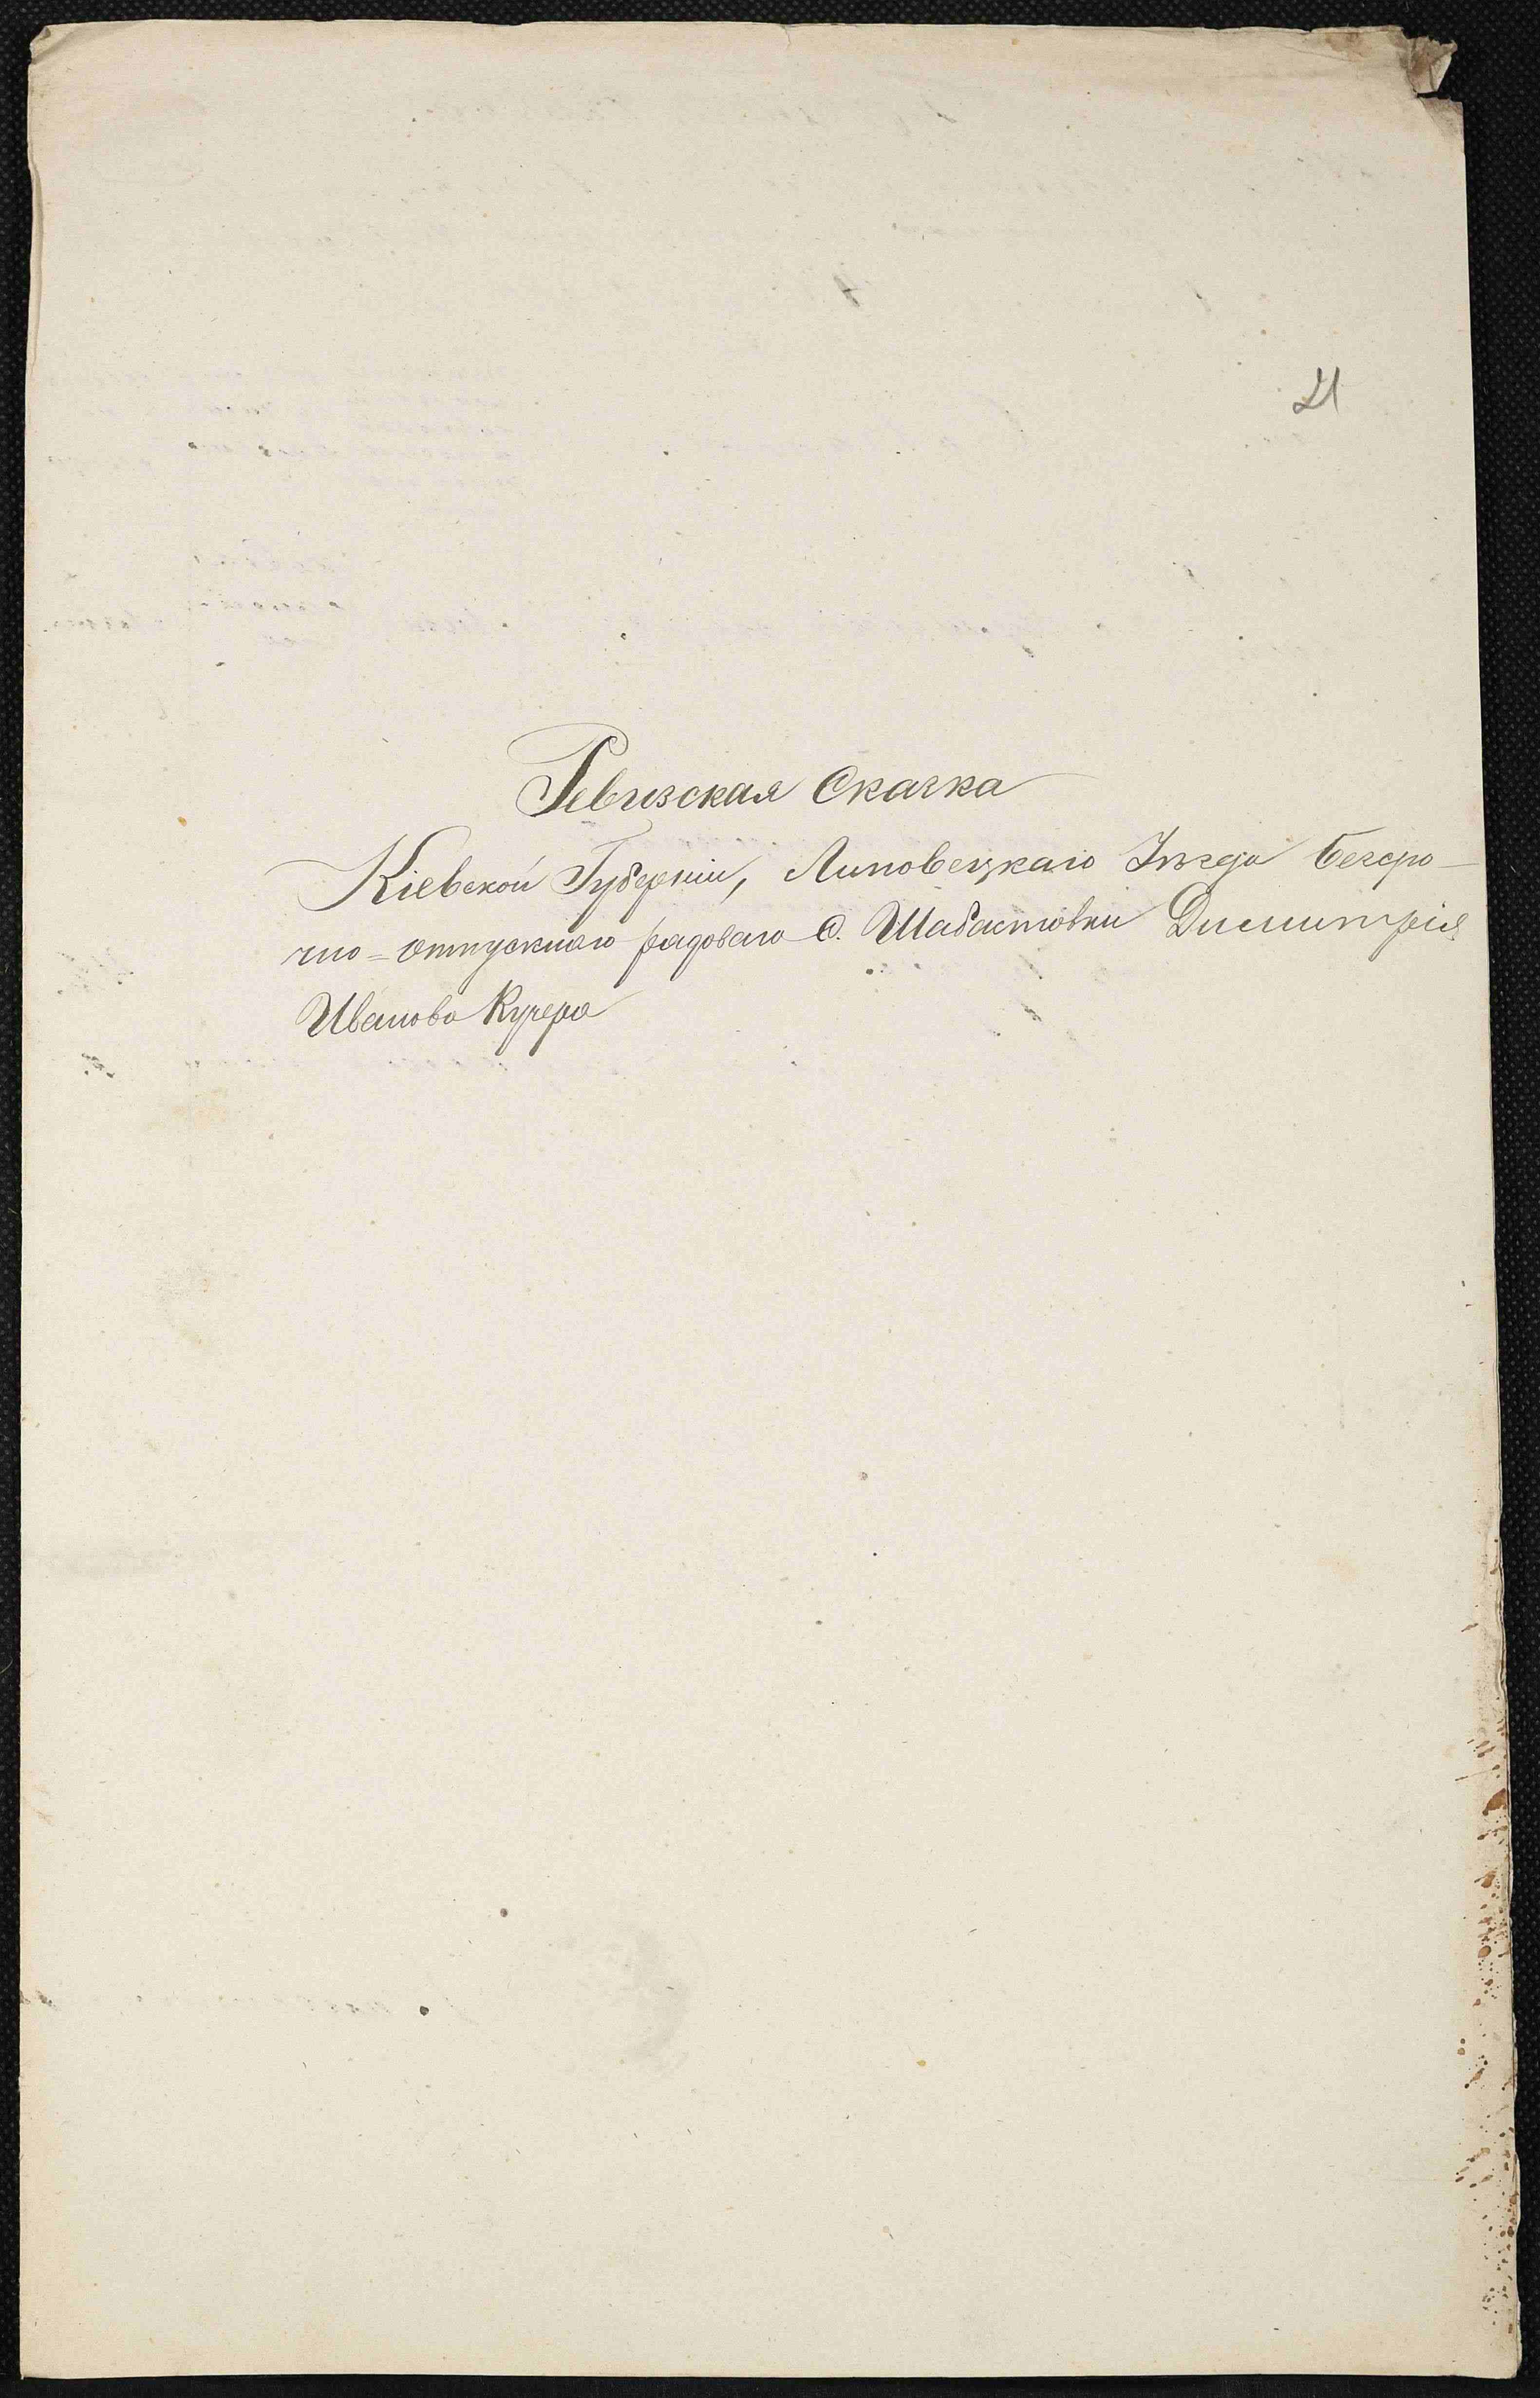 21
Ревизская Сказка
Кіевской Губерніи, Липовецкаго Уѣзда безсро-
чно=отпускного рядоваго С. Шабастовки Димитрія
Иванова Кучера